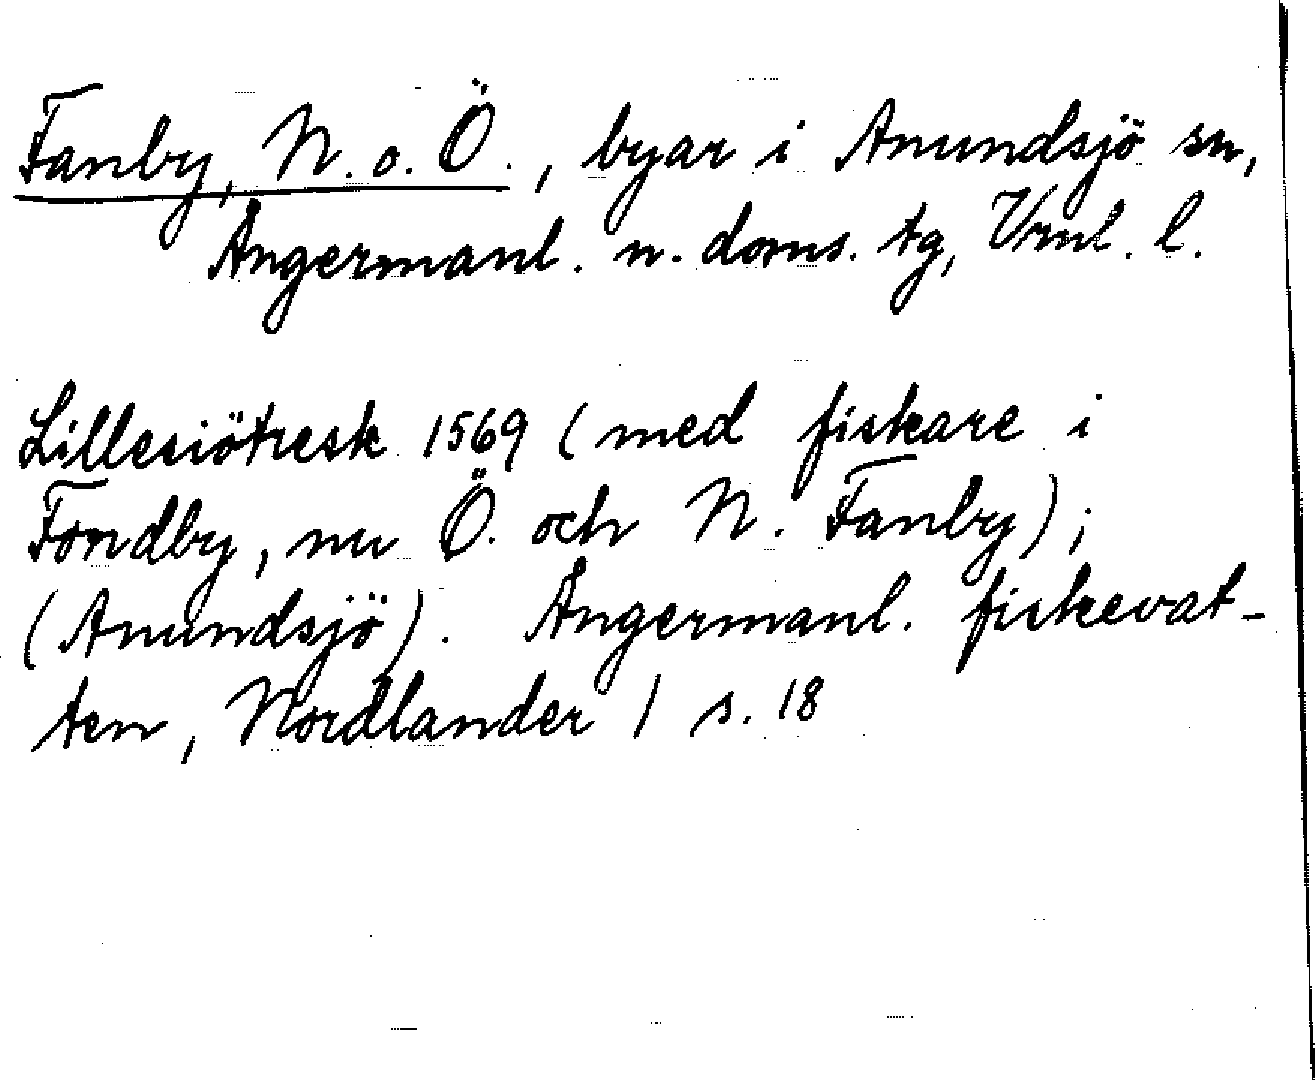 Fanby, N. o. Ö., byar i Anundsjö sn,
Ångermanl. n. doms. tg, Vrnl. l.
Lillesiötresk 1569 (med fiskare i
Fondby, nu Ö. och N. Fanby);
(Anundsjö). Ångermanl. fiskevat-
ten, Nordlander 1 s. 18